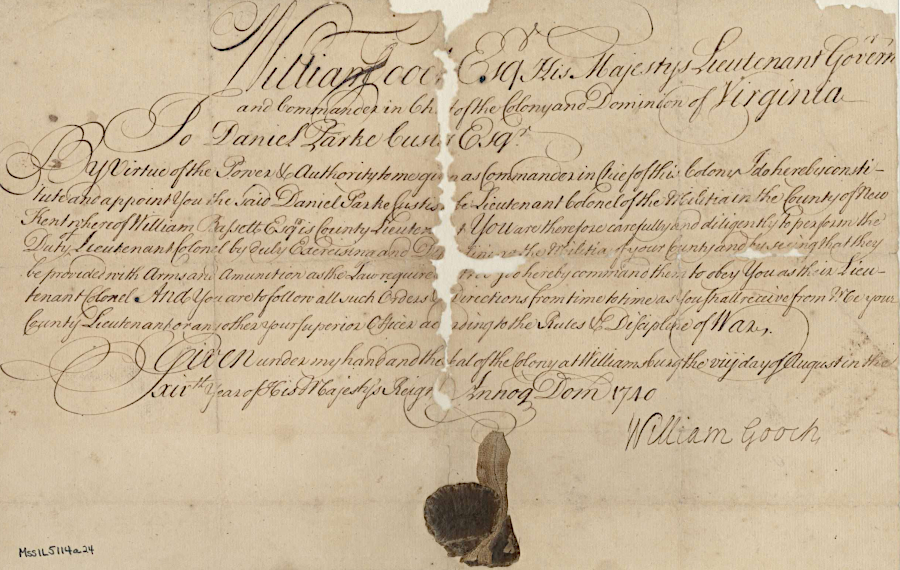 William Gooch Esqr. His Majestys Lieutenant Governr
and Commander in Ch of the Colony and Dominion of Virginia
To Daniel Parke Custis Esqr.
By Virtue of the Power & Authority to me given as Commander in Chief of this Colony I do hereby consti-
tute and appoint You the Said Daniel Parke Custis to be Lieutenant Colonel of the Militia in the County of New
Kent where of William Bassett Esqr is County Lieutenant You are therefore carefully and diligently to perform the
Duty Lieutenant Colonel by duly Exercising and the Militia of your County and by seeing that they
be provided with Arms and Amunition as the Law requires hereby command them to obey You as their Lieu-
tenant Colonel And You are to follow all such Orders & Directions from time to time as You shall receive from Me your
County Lieutenant or any other Your Superior Officer according to the Rules & Discipline of War.
Given under my hand and the Seal of the Colony at Williamsburg the viij day of August in the
xivth Year of His Majesty's Reign Annoq Dom 1740
William Gooch
Mss1L5114a24